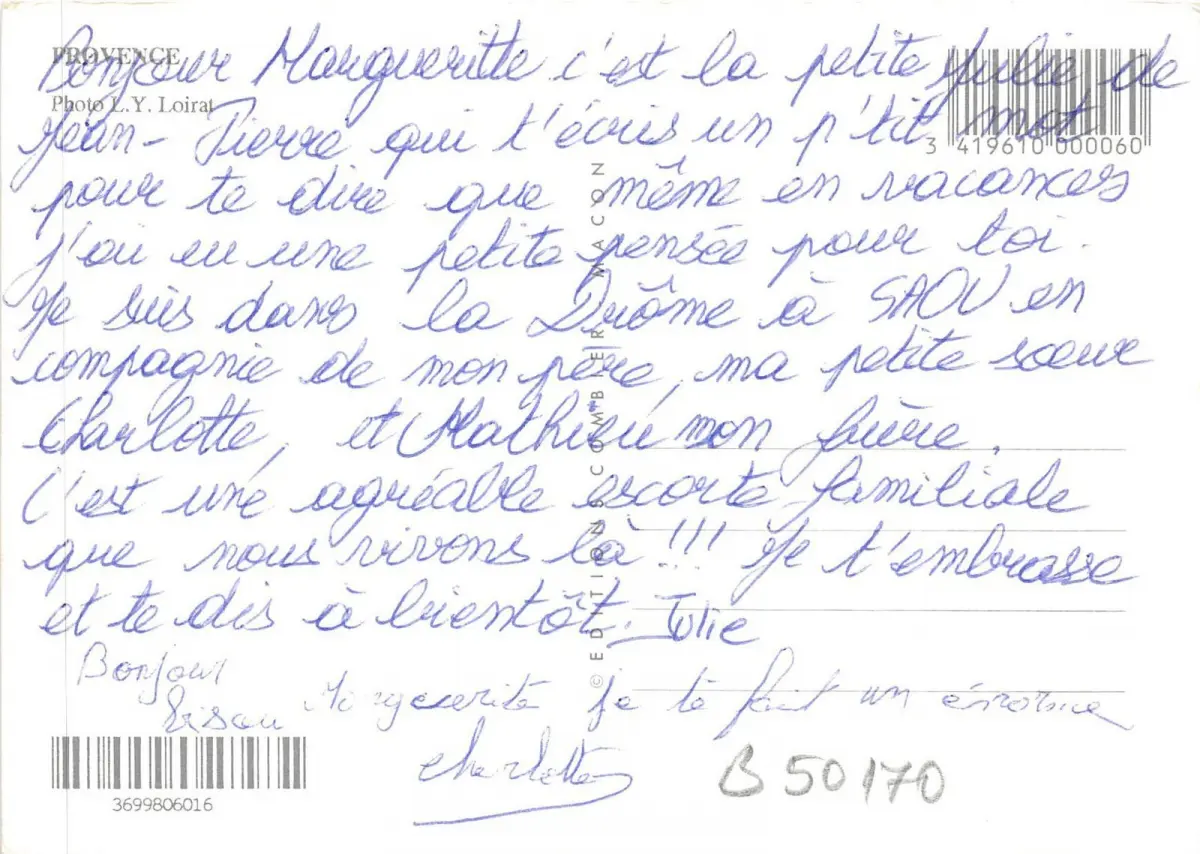 PROVENCE
Photo L.Y. Loirat
Bonjour Margueritte c'est la petite Julie de
Jean-Pierre qui t'écris un p'tit mot
pour te dire que même en vacances
j'ai eu une petite pensée pour toi.
Je suis dans la Drôme à SAOU en
compagnie de mon père, ma petite soeur
Charlotte, et Mathieu mon frère.
C'est une agréable escorte familiale
que nous vivons là !!! Je t'embrasse
et te dis à bientôt. Julie
Bonjour Marguerite je te fait un énorme
bisou
Charlotte
3 419610 000060
© EDITIONS COMBIER MACON
3699806016
B 50170